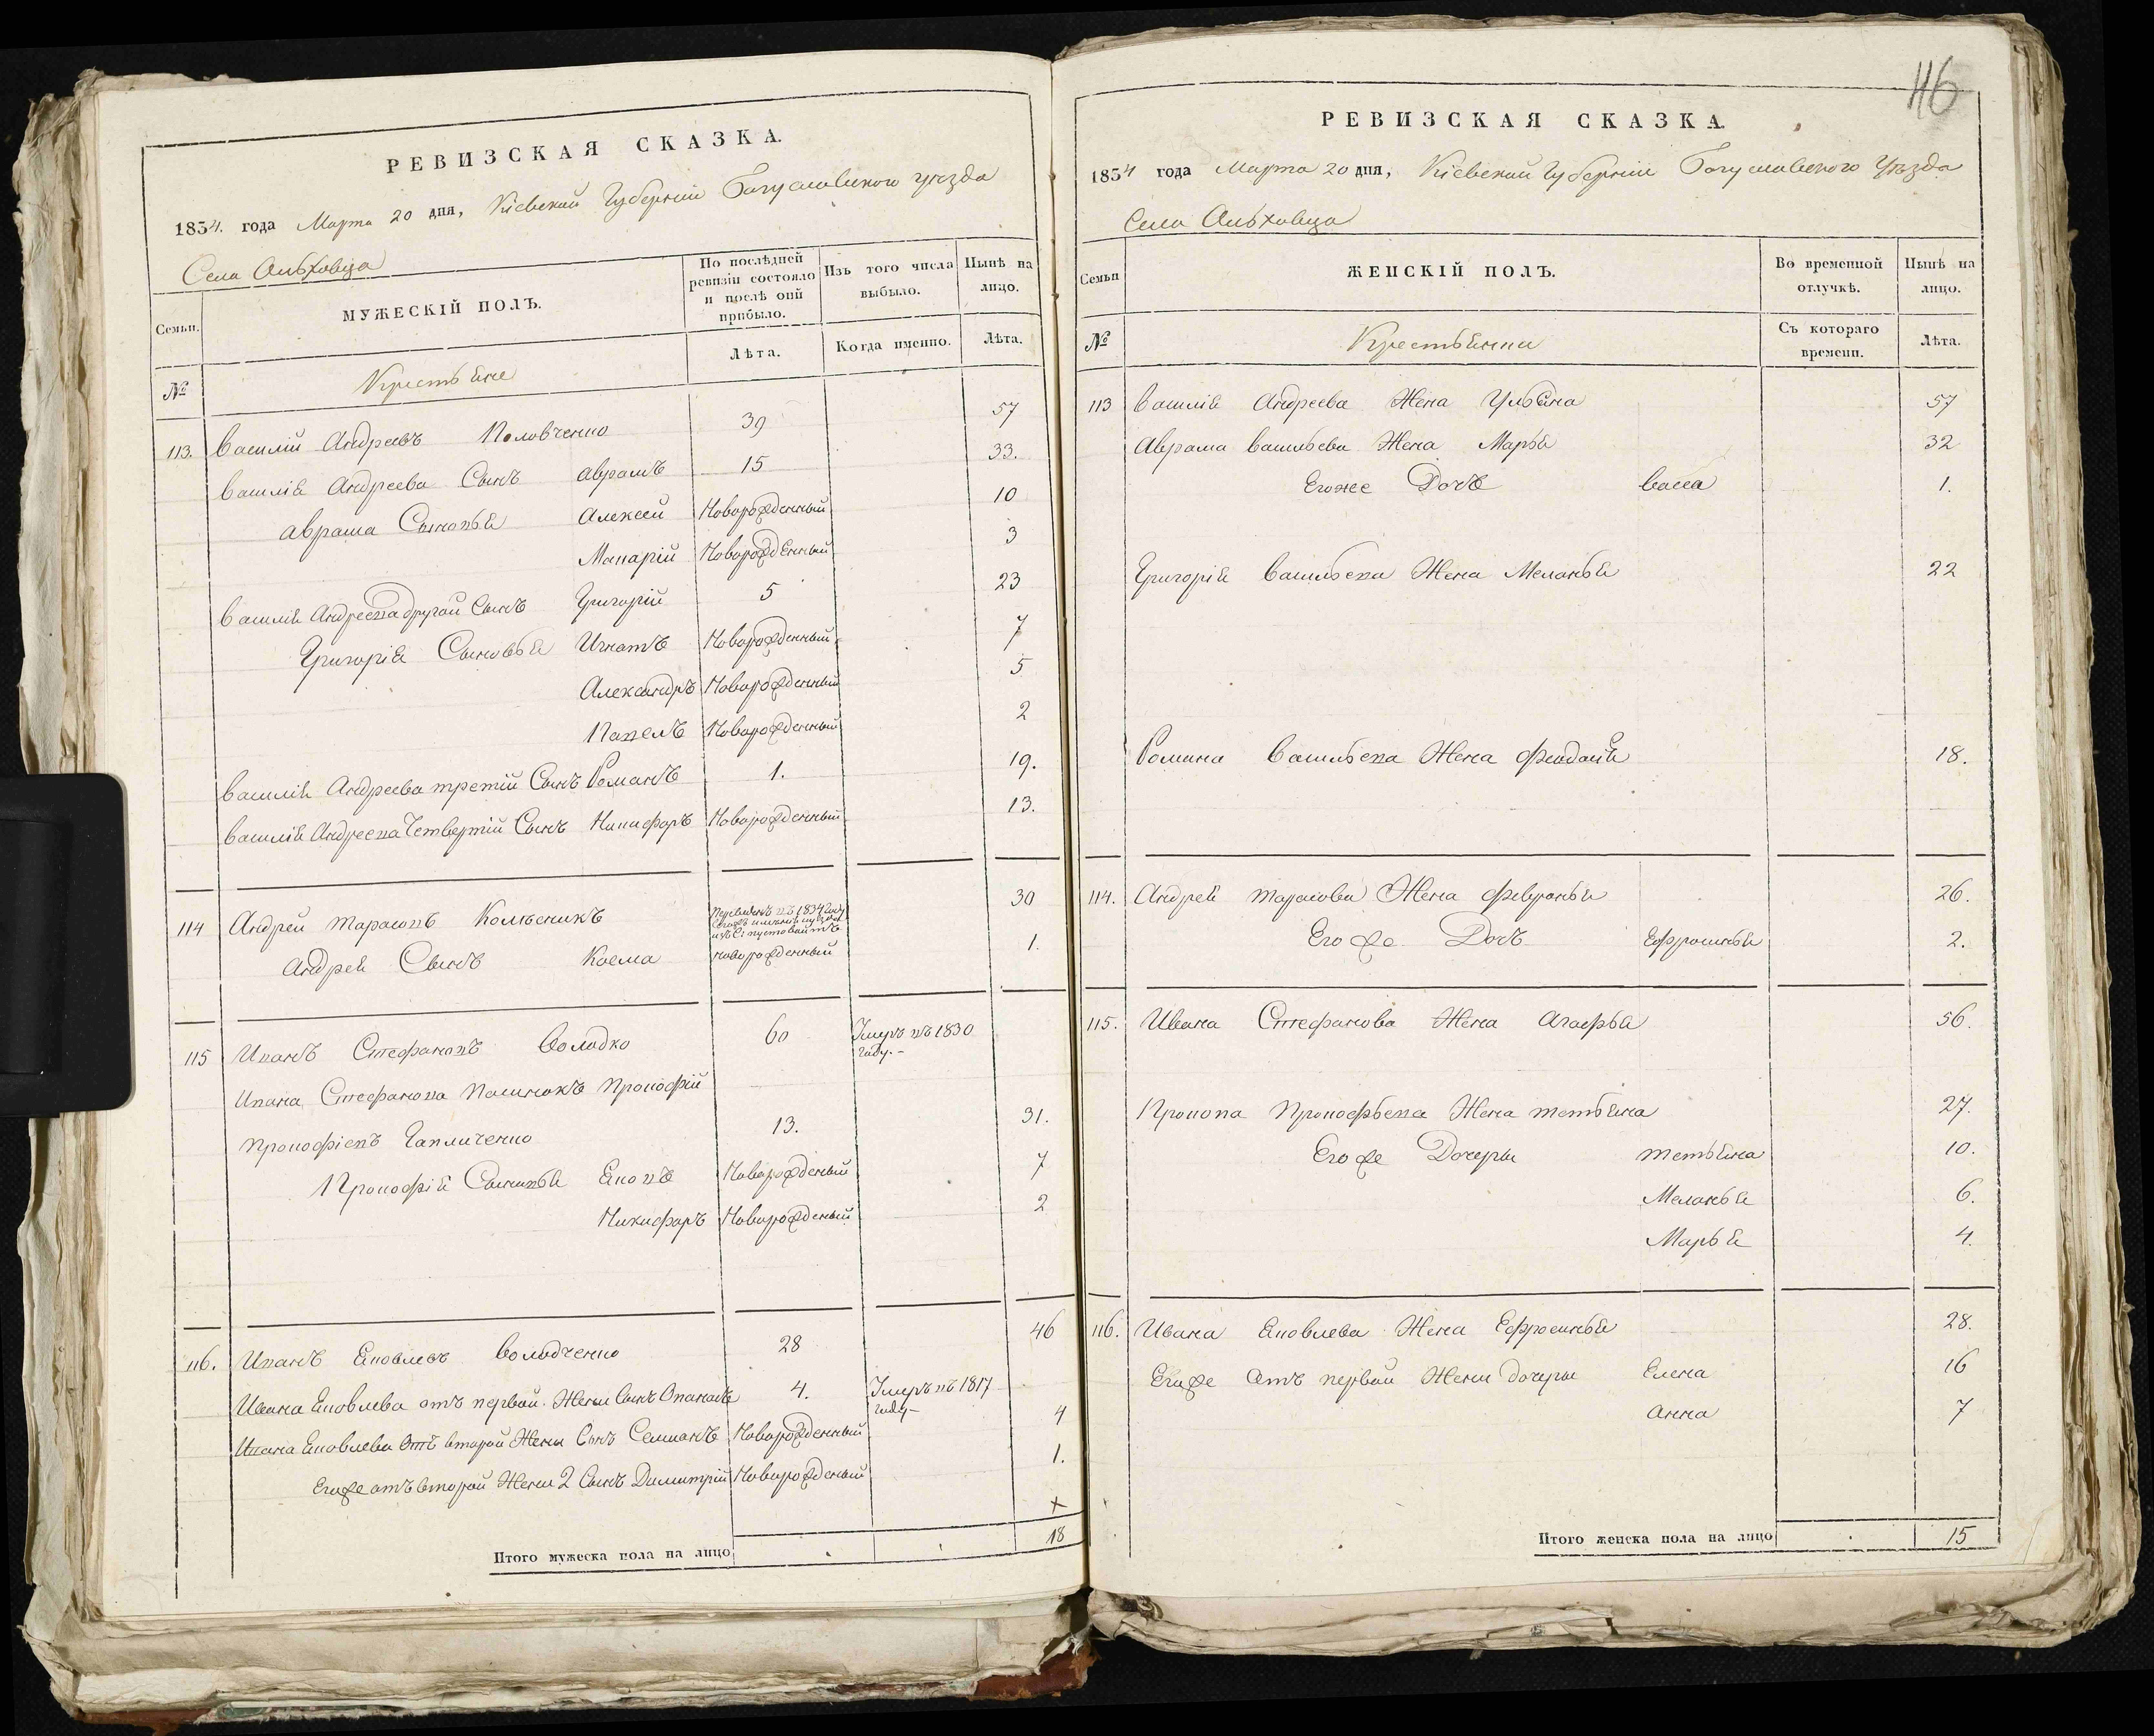 РЕВИЗСКАЯ СКАЗКА.
1834. года Марта 20 дня, Кіевской Губерніи Богуславского уезда
Села Ольховца
Семьи.
МУЖЕСКІЙ ПОЛЪ.
По послѣдней ревизіи состояло и послѣ оной прибыло.
Изъ того числа выбыло.
Нынѣ на лицо.
№
Крестьяне
Лѣта.
Когда именно.
Лѣта.
113. Василій Андреевъ Половченко 39 57
Василія Андреева Сынъ Аврамъ 15 33.
Аврама Сыновья Алексей Новорожденный 10
Макарій Новорожденный 3
Василія Андреева другой Сынъ Григорій 5 23
Григорія Сыновья Игнатъ Новорожденный 7
Александръ Новорожденный 5
Павелъ Новорожденный 2
Василія Андреева третій Сынъ Романъ 1. 19.
Василія Андреева Четвертій Сынъ Никифоръ Новорожденный 13.
114 Андрей Тарасовъ Колѣсникъ 30
въ 1834 году
Андрея Сынъ Косма новорожденный 1.
115 Иванъ Стефановъ Володко 60 Умеръ въ 1830 году.-
Ивана Стефанова Пасинокъ Прокофій
Прокофіевъ Гапличенко 13. 31.
Прокофія Сыновья Яковъ Новорожденый 7
Никифоръ Новорожденый 2
116. Иванъ Яковлевъ Володченко 28 46
Ивана Яковлева отъ первой Жены Сынъ Опанасъ 4. Умеръ въ 1817 году-
Ивана Яковлева Отъ второй Жены Сынъ Семианъ Новорожденный 4
Егоже отъ второй Жены 2 Сынъ Димитрій Новорожденый 1.
х
Итого мужеска пола на лицо 18
116
РЕВИЗСКАЯ СКАЗКА.
1834 года Марта 20 дня, Кіевской Губерніи Богуславского Уезда
Села Ольховца
Семьи
ЖЕНСКІЙ ПОЛЪ.
Во временной отлучкѣ.
Нынѣ на лицо.
№
Крестьянки
Съ котораго времени.
Лѣта.
113 Василія Андреева Жена Ульяна 57
Аврама Васильева Жена Марья 32
Егоже Дочь Васса 1.
Григорія Васильева Жена Меланья 22
Романа Васильева Жена Феодосія 18.
114. Андрея Тарасова Жена Февронья 26.
Егоже Дочь Ефросинья 2.
115. Ивана Стефанова Жена Агафья 56.
Прокопа Прокофьева Жена Татьяна 27.
Егоже Дочери Татьяна 10.
Меланья 6.
Марья 4.
116. Ивана Яковлева Жена Ефросинья 28.
Егоже Отъ первой Жены дочери Елена 16
Анна 7
Итого женска пола на лицо 15